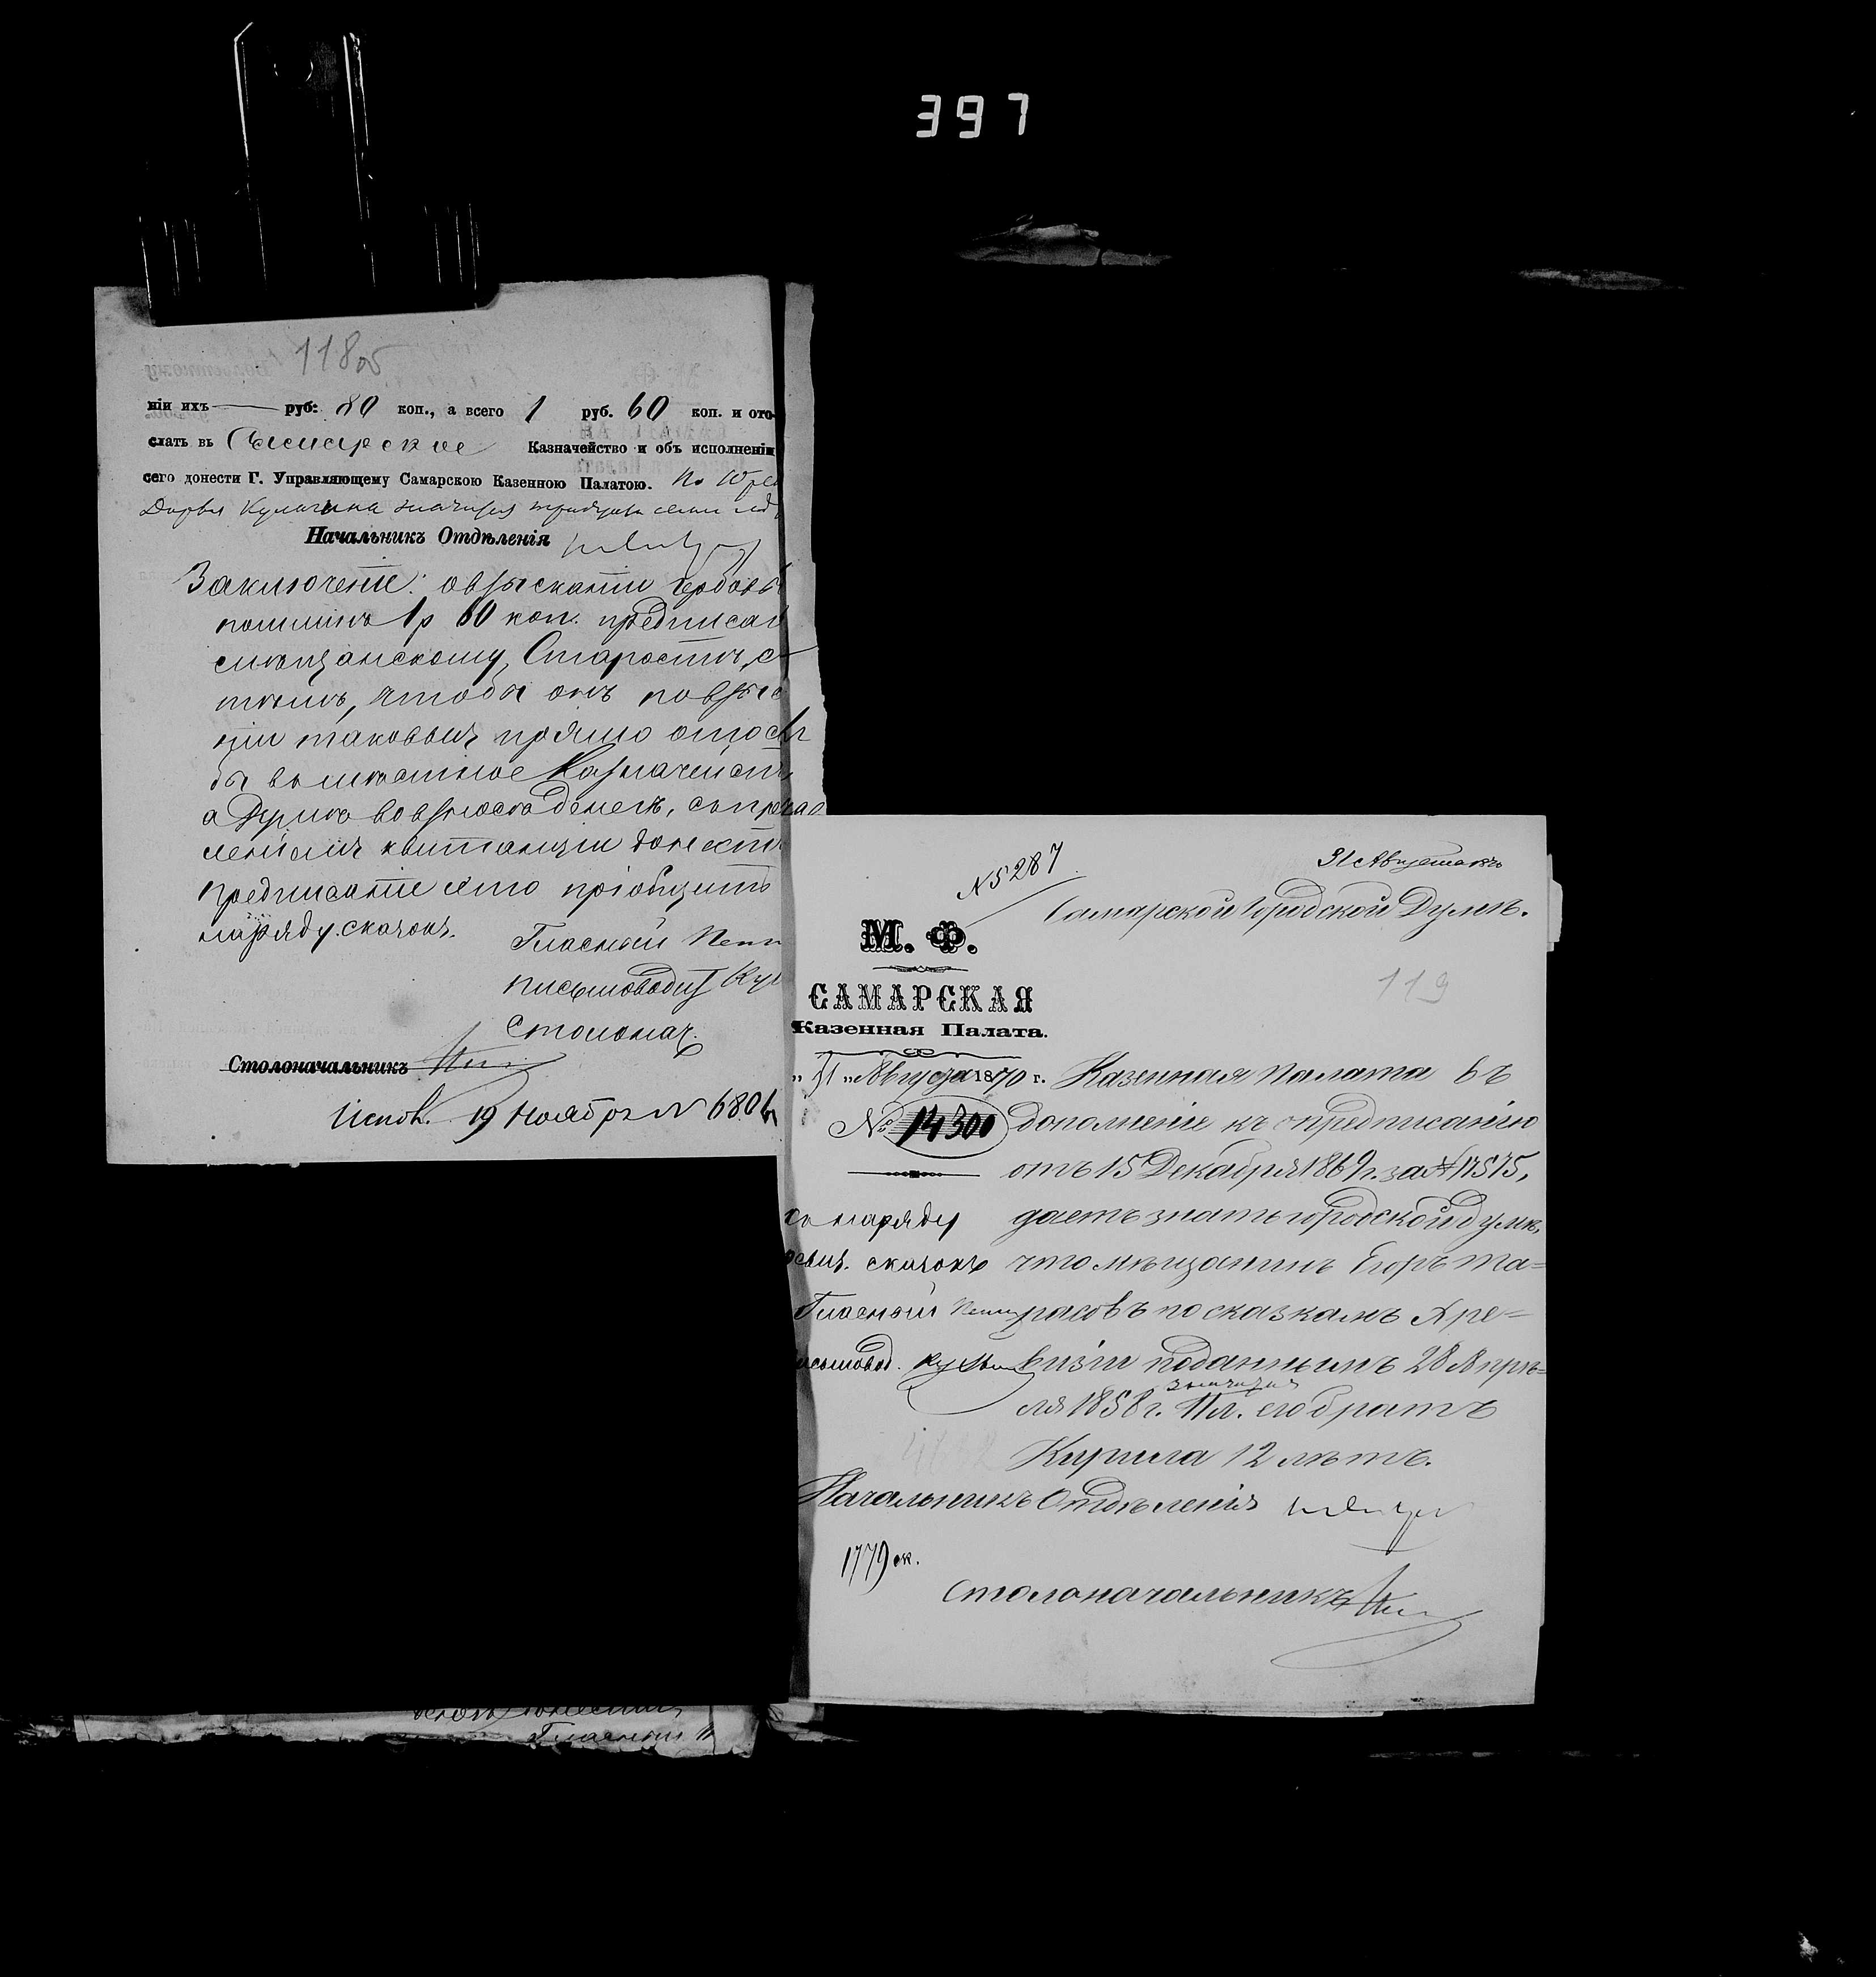 397
118об
ніи ихъ — руб: 80 коп., а всего 1 руб. 60 коп. и ото-
слать въ Самарское Казначейство и объ исполненіи
сего донести Г. Управляющему Самарскою Казенною Палатою. По 10 ре
Дарья значится тридцати семи
Начальникъ Отдѣленія
Заключеніе: о взысканіи гербовы
пошлинъ 1 р 60 коп. предписать
мѣщанскому Старостѣ, съ
тѣмъ, чтобы онъ по взыс
ніи таковыхъ прямо отосл
бы въ мѣстное Казначейств
а Думѣ о взносѣ денегъ, съ предста
леніемъ квитанціи донести
предписаніе это пріобщить
наряду. сказокъ.
Гласный
письмовод
Столонач.
Столоначальникъ
Исполн. 19 Ноября № 6806
№ 5287
31 Августа
Самарской Городской Думѣ.
119
М. Ф.
САМАРСКАЯ
Казенная Палата.
„31„ Августа 1870 г.
№ 14300
Казенная Палата въ
дополненіе къ предписанію
отъ 15 Декабря 1869 г. за № 17575,
даетъ знать городской думѣ,
что мѣщанинъ Егоръ Та=
расовъ по сказкамъ X ре=
визіи поданнымъ 28 Апрѣ=
значится
ля 1858 г. его братъ
Кирила 12 лѣтъ.
къ наряду
сказокъ
Гласный
Начальникъ Отдѣленія
1779 ск.
Столоначальникъ
Гласный